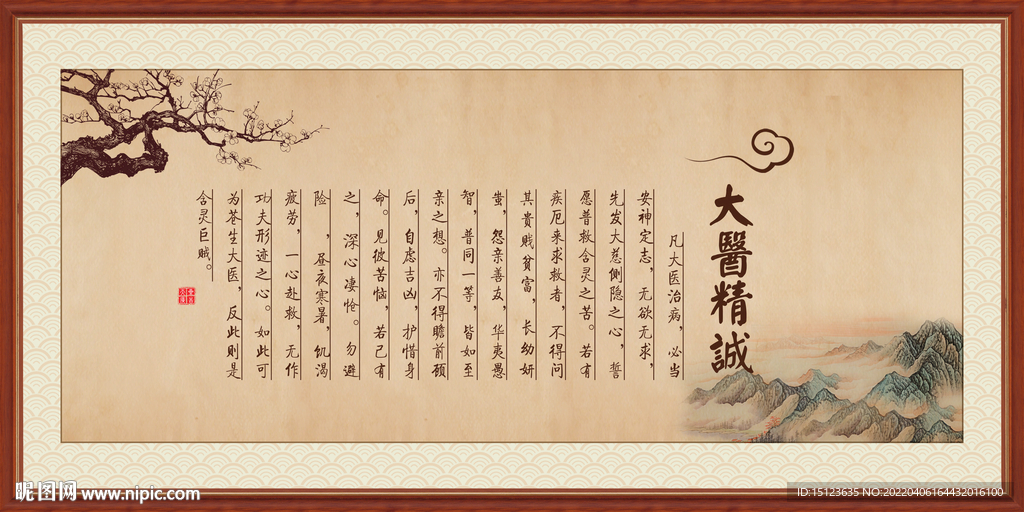 大醫精誠
凡大医治病，必当
安神定志，无欲无求，
先发大慈恻隐之心，誓
愿普救含灵之苦。若有
疾厄来求救者，不得问
其贵贱贫富，长幼妍
蚩，怨亲善友，华夷愚
智，普同一等，皆如至
亲之想。亦不得瞻前顾
后，自虑吉凶，护惜身
命。见彼苦恼，若己有
之，深心凄怆。勿避
险 ，昼夜寒暑，饥渴
疲劳，一心赴救，无作
功夫形迹之心。如此可
为苍生大医，反此则是
含灵巨贼。
昵图网 www.nipic.com
ID:15123635 NO:20220406164432016100